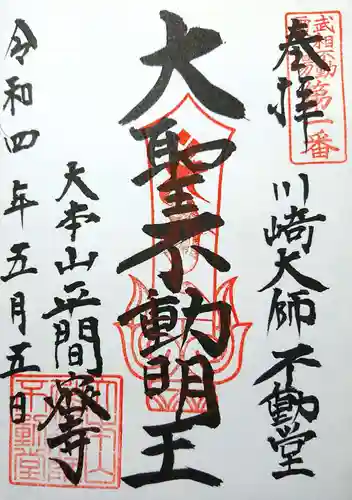 武相不動
霊場
第一番
奉拝
川崎大師 不動堂
大聖不動明王
大本山平間寺
令和四年五月五日
不動堂